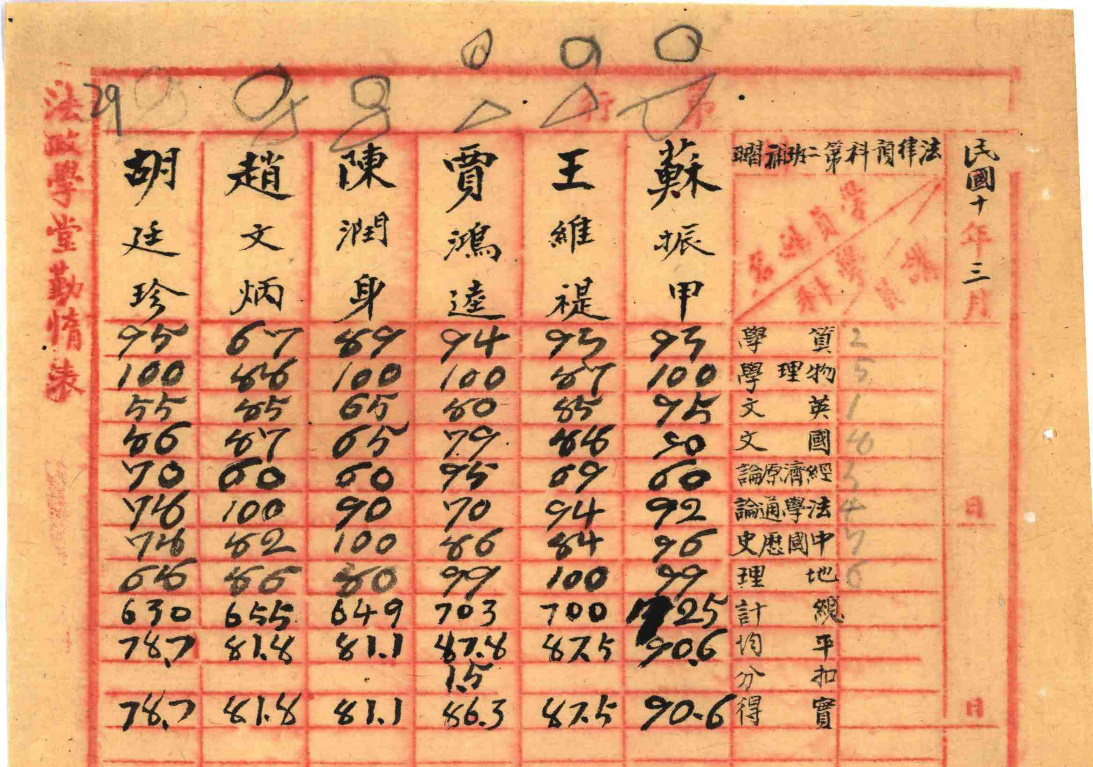 第行
民國十年三月
日
日
法律預科第二班補習
教員
學科
學員姓名
2 5 1 8 3 4 7 6
算學
物理學
英文
國文
經濟原論
法學通論
中國歷史
地理
總計
平均
扣分
實得
蘇振甲
93
100
95
90
60
92
96
99
725
90.6
90.6
王維禔
93
87
85
88
69
94
84
100
700
87.5
87.5
賈鴻逵
94
100
80
79
95
70
86
99
703
87.8
1.5
86.3
陳潤身
89
100
65
65
60
90
100
80
649
81.1
81.1
趙文炳
67
88
85
87
60
100
82
86
655
81.8
81.8
胡廷珍
95
100
55
86
70
78
78
68
630
78.7
78.7
29
法政學堂勤惰表